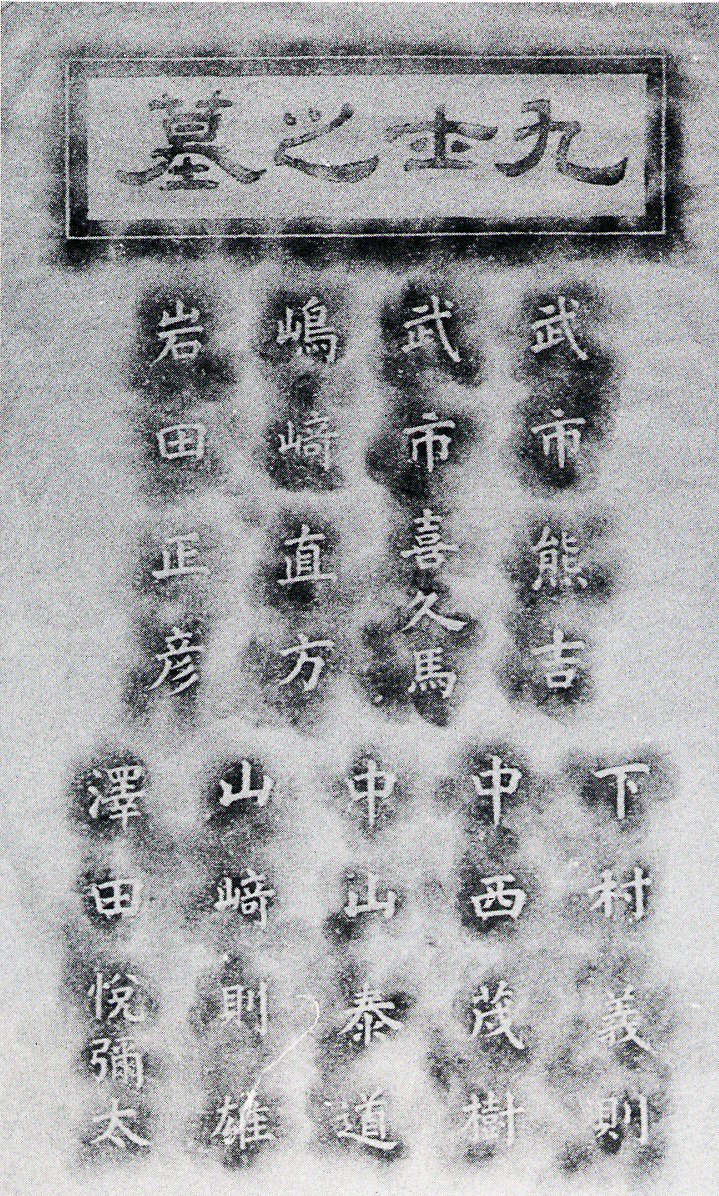 九士之墓
武市熊吉
武市喜久馬
嶋﨑直方
岩田正彦
下村義則
中西茂樹
中山泰道
山﨑則雄
澤田悅彌太